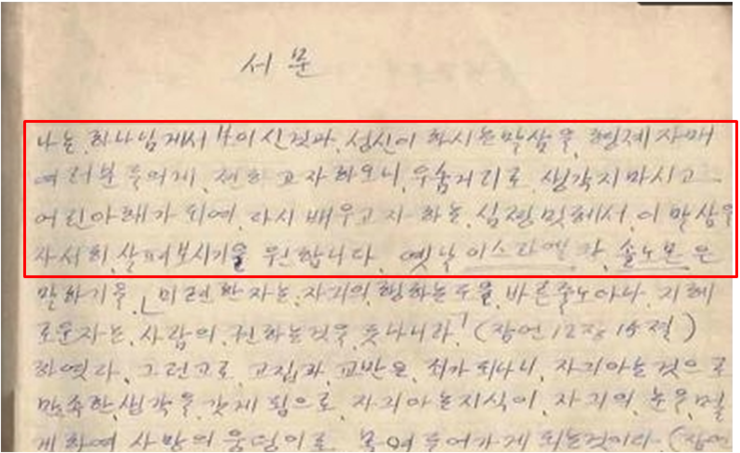 서문
나는, 하나님게서 보이신것과, 성신이 하시는말삼을, 형제자매
여러분들이게, 전하고자하오니, 우숨거리로 생각지마시고
어린아해가 되여, 다시 배우고자 하는, 심졍밋헤서, 이 말삼을
자서히, 살펴보시기를 원합니다. 옛날 이스라엘 왕, 솔노몬은
말하기을,「미련한자는, 자긔의, 행하는도을, 바른줄노아나, 지혜
로운자는, 사람의, 권하는것을, 듯나니라.」(잠언12장15절)
하엿다, 그런고로, 고집과, 교만은, 죄가되나니, 자긔아는것으로
만족한, 생각을, 갖게 됨으로, 자긔아는지식이, 자긔의, 눈을, 멀
게하여 사망의 웅덩이로 드러가게 되는것이다. (잠언